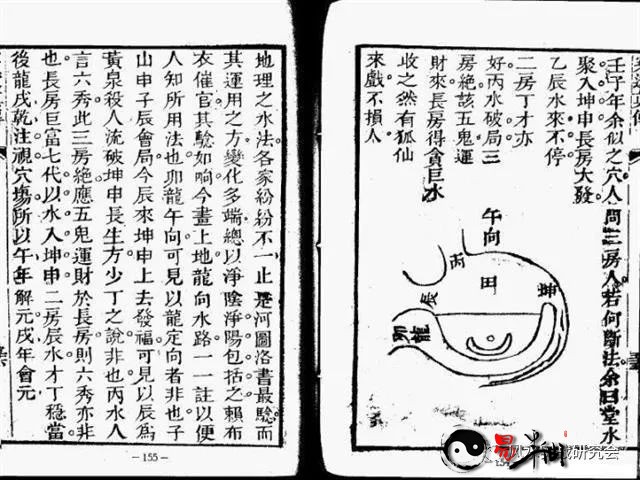 壬子年余似之穴人問三房人若何斷法余曰堂水
聚入坤申長房大發
乙辰水來不停
二房丁才亦
好丙水破局三
房絶該五鬼運
財來長房得貪巨水
收之然有狐仙
來戲不損人
午向
丙
田
坤
辰
卯龍
地理之水法各家紛紛不一止是河圖洛書最驗而
其運用之方變化多端總以淨陰淨陽包括之賴布
衣催官其驗如响今畫上地龍向水路一一註以便
人知所用法也卯龍午向可見以龍定向者非也子
山申子辰會局今辰來坤申上去發福可見以辰為
黃泉殺人流破坤申長生方少丁之說非也丙水人
言六秀此三房絶應五鬼運財於長房則六秀亦非
也長房巨富七代以水入坤申二房辰水才丁穩當
後龍戌乾注視穴塲所以午年解元戌年會元
-155-
易
研究会